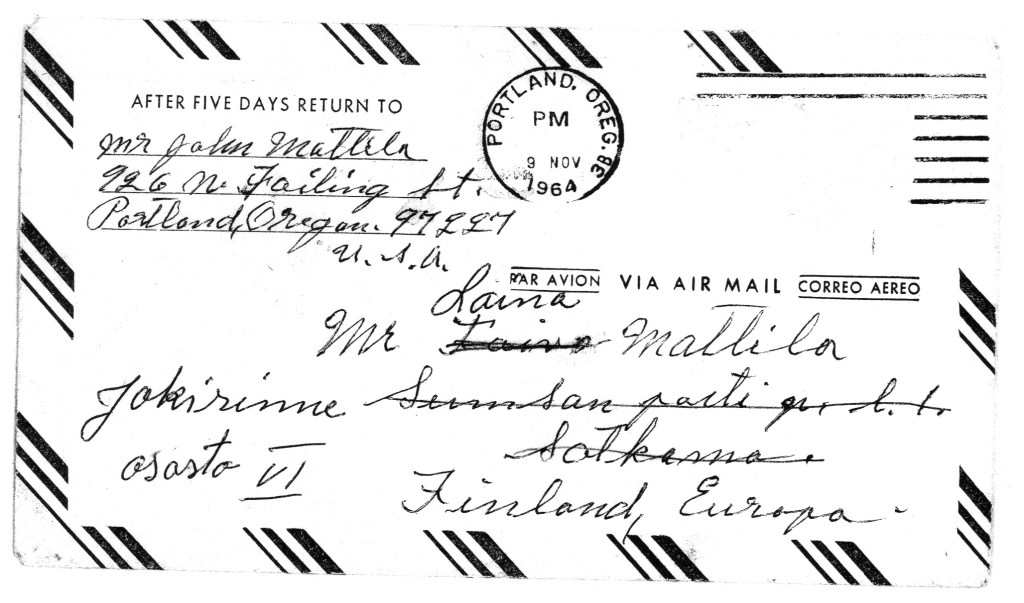 AFTER FIVE DAYS RETURN TO
Mr John Mattila
926 N. Failing St.
Portland, Oregon. 97227
U.S.A.
PORTLAND, OREG. 38
PM
9 NOV
1964
PAR AVION VIA AIR MAIL CORREO AEREO
Laina
Mr Toivo Mattila
Jokirinne
Sotkamo.
osasto VI
Finland, Europa